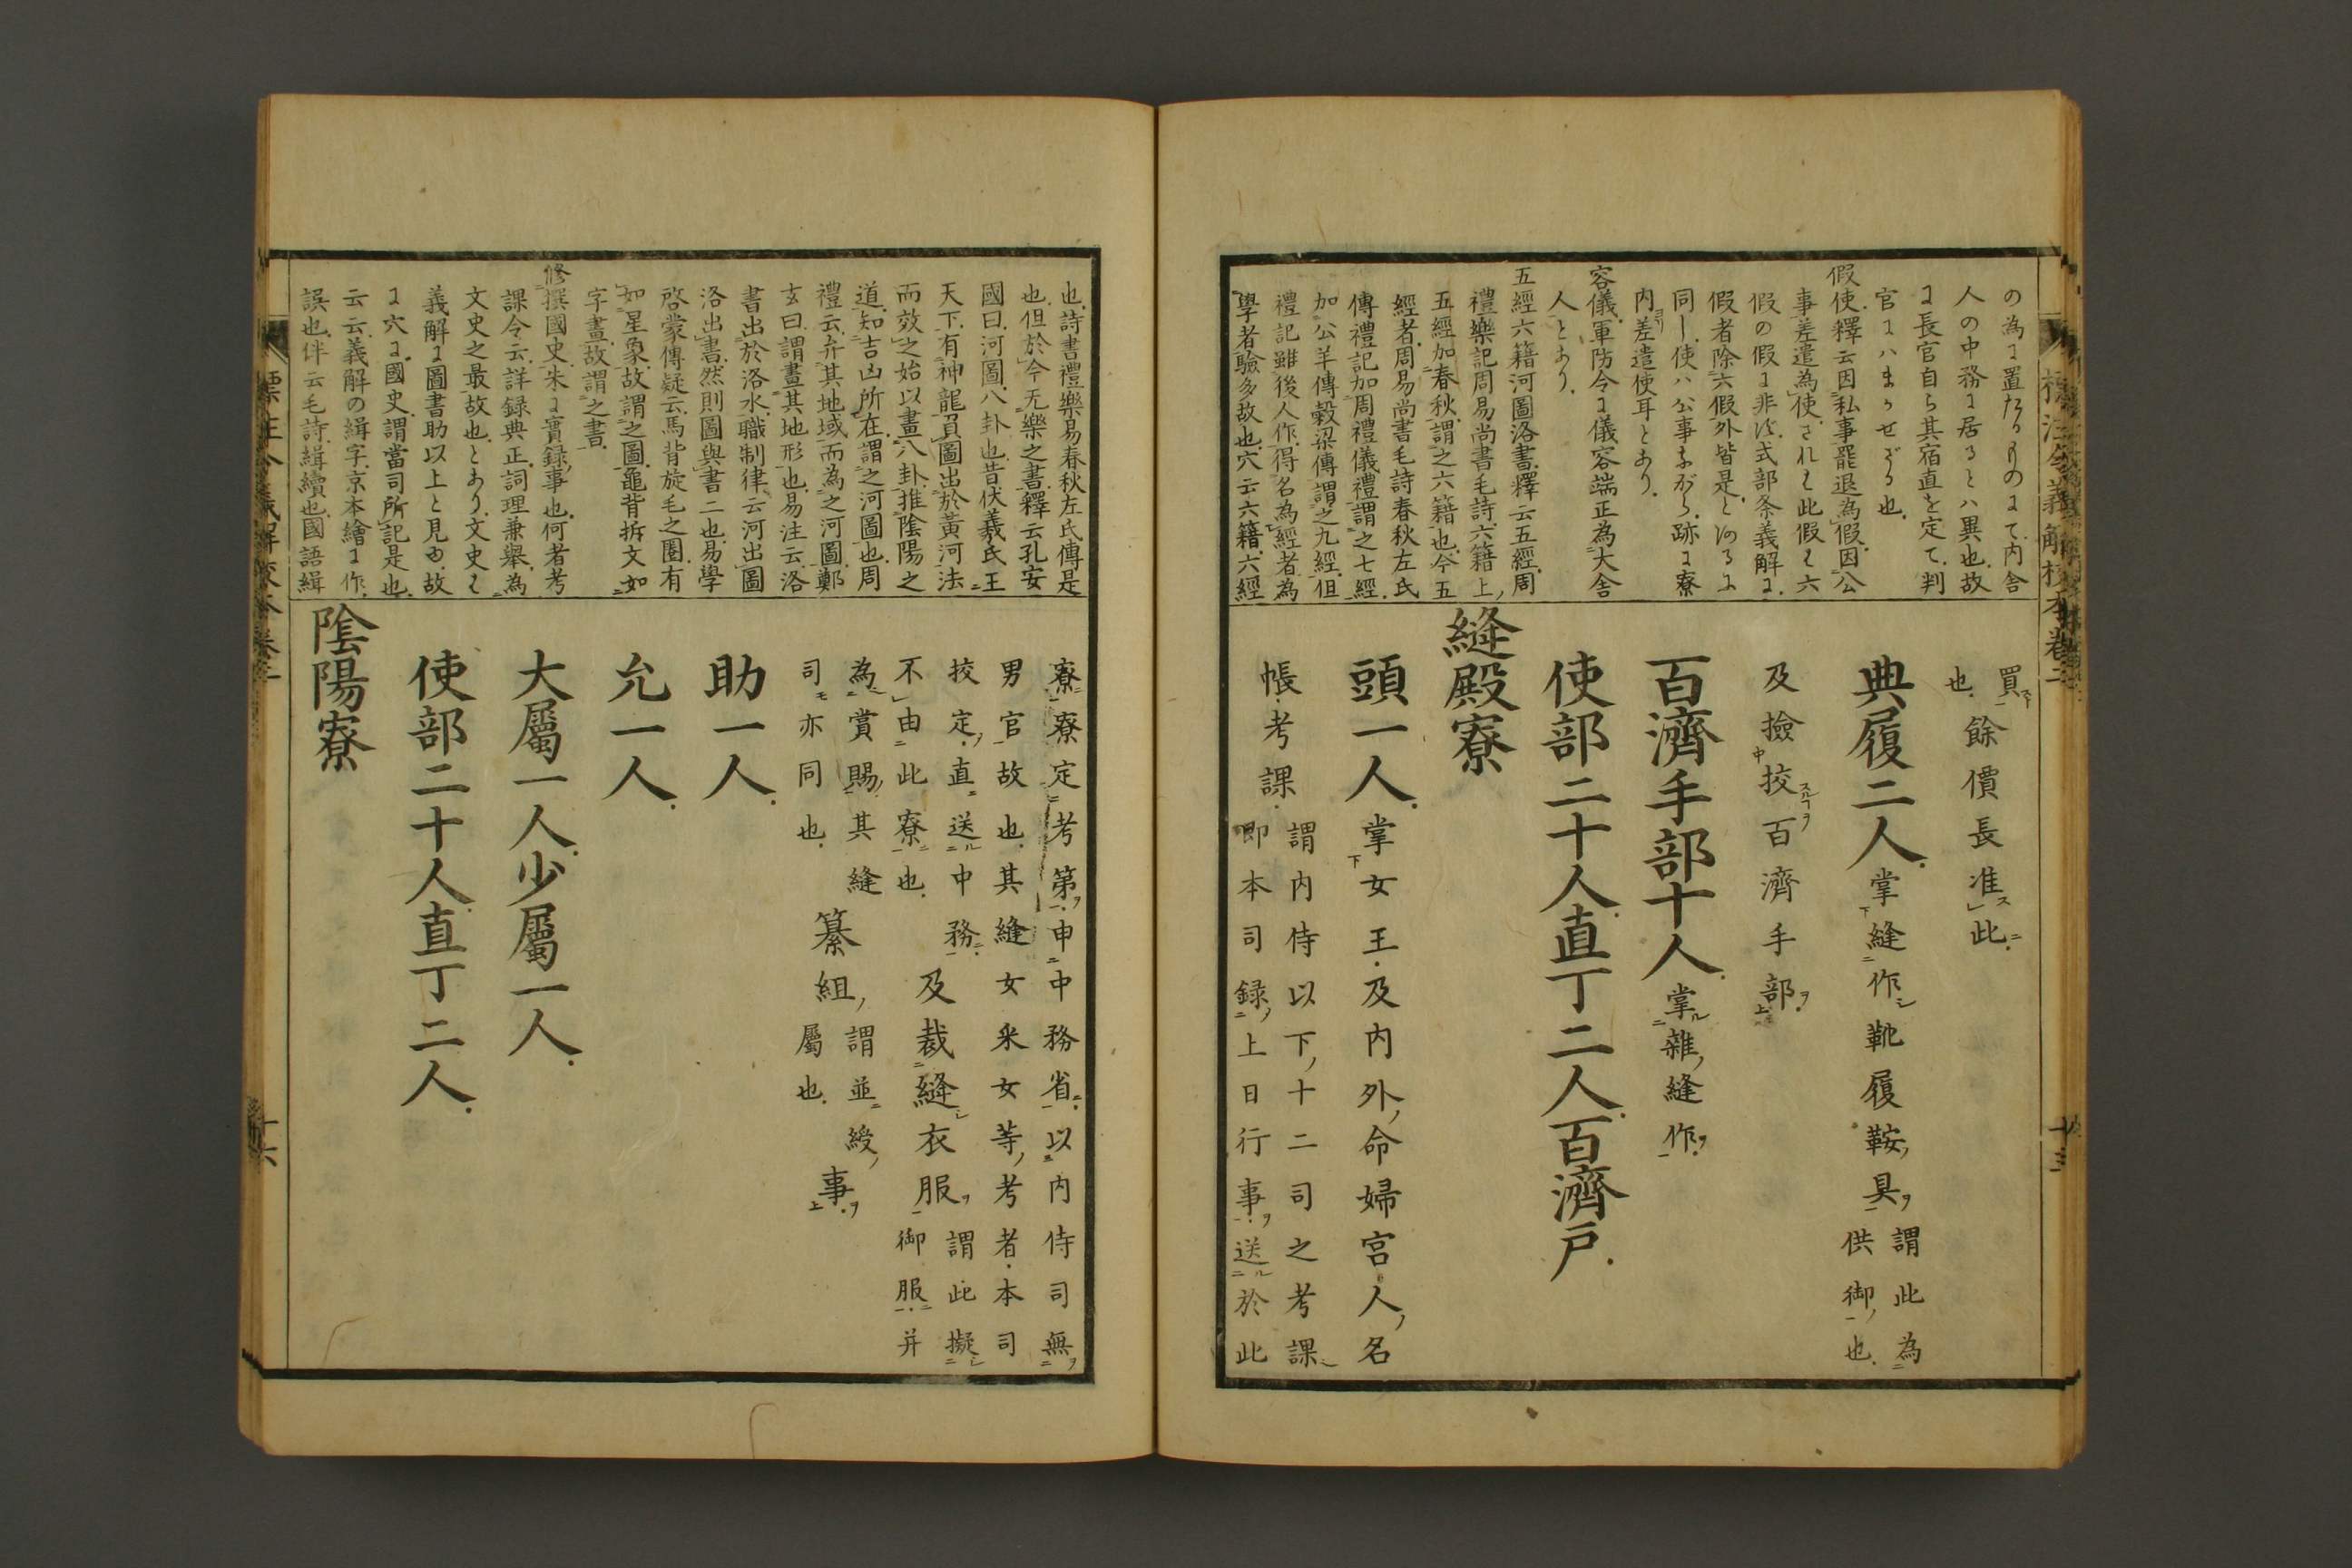 の為に置たるものにて内舎
人の中務に居るとハ異也故
に長官自ら其宿直を定て判
官にハまかせざる也
假使釋云因私事罷退為假因公
事差遣為使されは此假は六
假の假に非ず式部条義解に
假者除六假外皆是とあるに
同し使ハ公事ながら跡に寮
内より差遣使耳とあり
容儀軍防令に儀容端正為大舎
人とあり
五經六籍河圖洛書釋云五經周
禮樂記周易尚書毛詩六籍上
五經加春秋謂之六籍也今五
經者周易尚書毛詩春秋左氏
傳禮記加周禮儀禮謂之七經
加公羊傳穀梁傳謂之九經但
禮記雖後人作得名為經者為
學者驗多故也穴云六籍六經
買
也餘價長准此
典履二人掌縫作靴履鞍具謂此為
供御也
及撿挍百濟手部
百濟手部十人掌雜縫作
使部二十人直丁二人百濟戸
縫殿寮
頭一人掌女王及内外命婦宮人名
帳考課謂内侍以下十二司之考課
即本司録上日行事送於此
也詩書禮樂易春秋左氏傳是
也但於今无樂之書釋云孔安
國曰河圖八卦也昔伏羲氏王
天下有神龍負圖出於黄河法
而效之始以畫八卦推陰陽之
道知吉凶所在謂之河圖也周
禮云弁其地域而為之河圖鄭
玄曰謂畫其地形也易注云洛
書出於洛水職制律云河出圖
洛出書然則圖與書二也易學
啓蒙傳疑云馬背旋毛之圏有
如星象故謂之圖龜背拆文如
字畫故謂之書
修撰國史朱に實録事也何者考
課令云詳録典正詞理兼舉為
文史之最故也とあり文史は
義解に圖書助以上と見ゆ故
に穴に國史謂當司所記是也
云云義解の緝字京本繪に作
誤也伴云毛詩緝續也國語緝
寮寮定考第申中務省以内侍司無
男官故也其縫女釆女等考者本司
挍定直送中務
不由此寮也及裁縫衣服謂此擬
御服并
為賞賜其縫
司亦同也纂組謂並綬
屬也事
助一人
允一人
大屬一人少屬一人
使部二十人直丁二人
陰陽寮